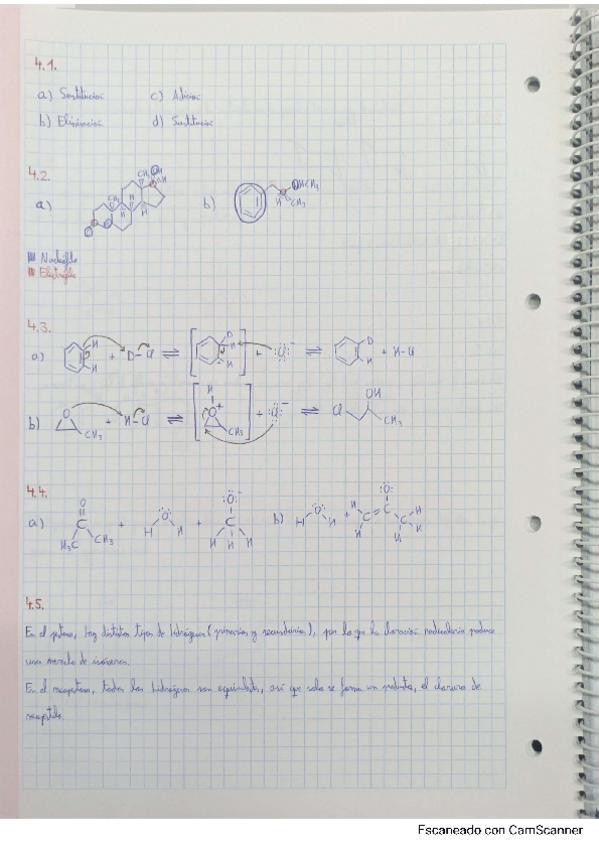 4.1.
a) Sustitución c) Adición
b) Eliminación d) Sustitución
4.2.
a) CH₃ OH CH₃ H H H O b) OHCH₃ H CH₃
Nucleófilo
Electrófilo
4.3.
a) H H + D-Cl ⇌ [ D H H ] + :Cl:⁻ ⇌ D H + H-Cl
b) O CH₃ + H-Cl ⇌ [ H O⁺ CH₃ ] + :Cl:⁻ ⇌ Cl OH CH₃
4.4.
a) O C H₃C CH₃ + H O H + :O:⁻ C H H H b) H O H + H H C = C :O: C H H H
4.5.
En el pentano, hay distintos tipos de hidrógenos (primarios y secundarios), por lo que la cloración radicalaria produce
una mezcla de isómeros.
En el neopentano, todos los hidrógenos son equivalentes, así que solo se forma un producto, el cloruro de
neopentilo.